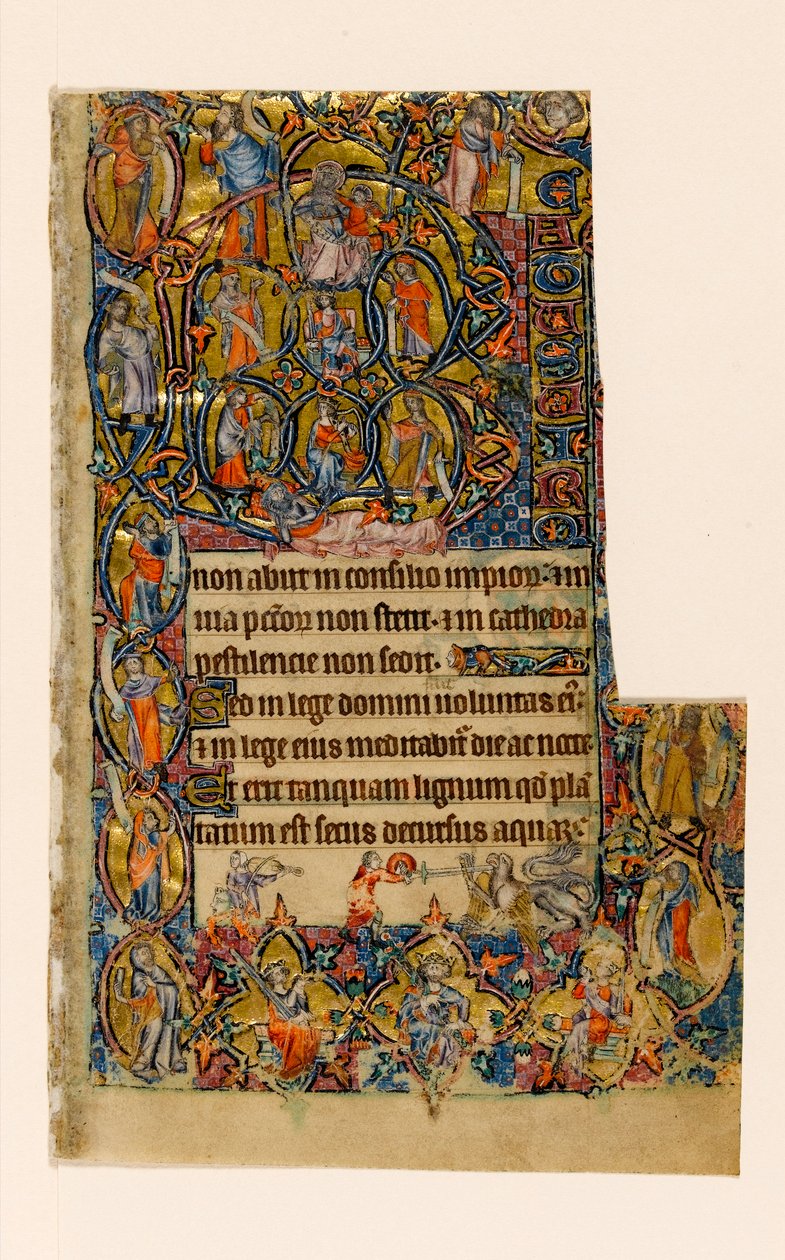 EATUSUIRQ
non abiit in consilio impioꝝ: ⁊ in
uia pc̄coꝝ non stetit. ⁊ in cathedra
pestilencie non sedit.
Sed in lege domini uoluntas ei᷒:
⁊ in lege eius meditabit᷑ die ac nocte.
Et erit tanquam lignum qd̄ plā
tatum est secus decursus aquaꝝ: